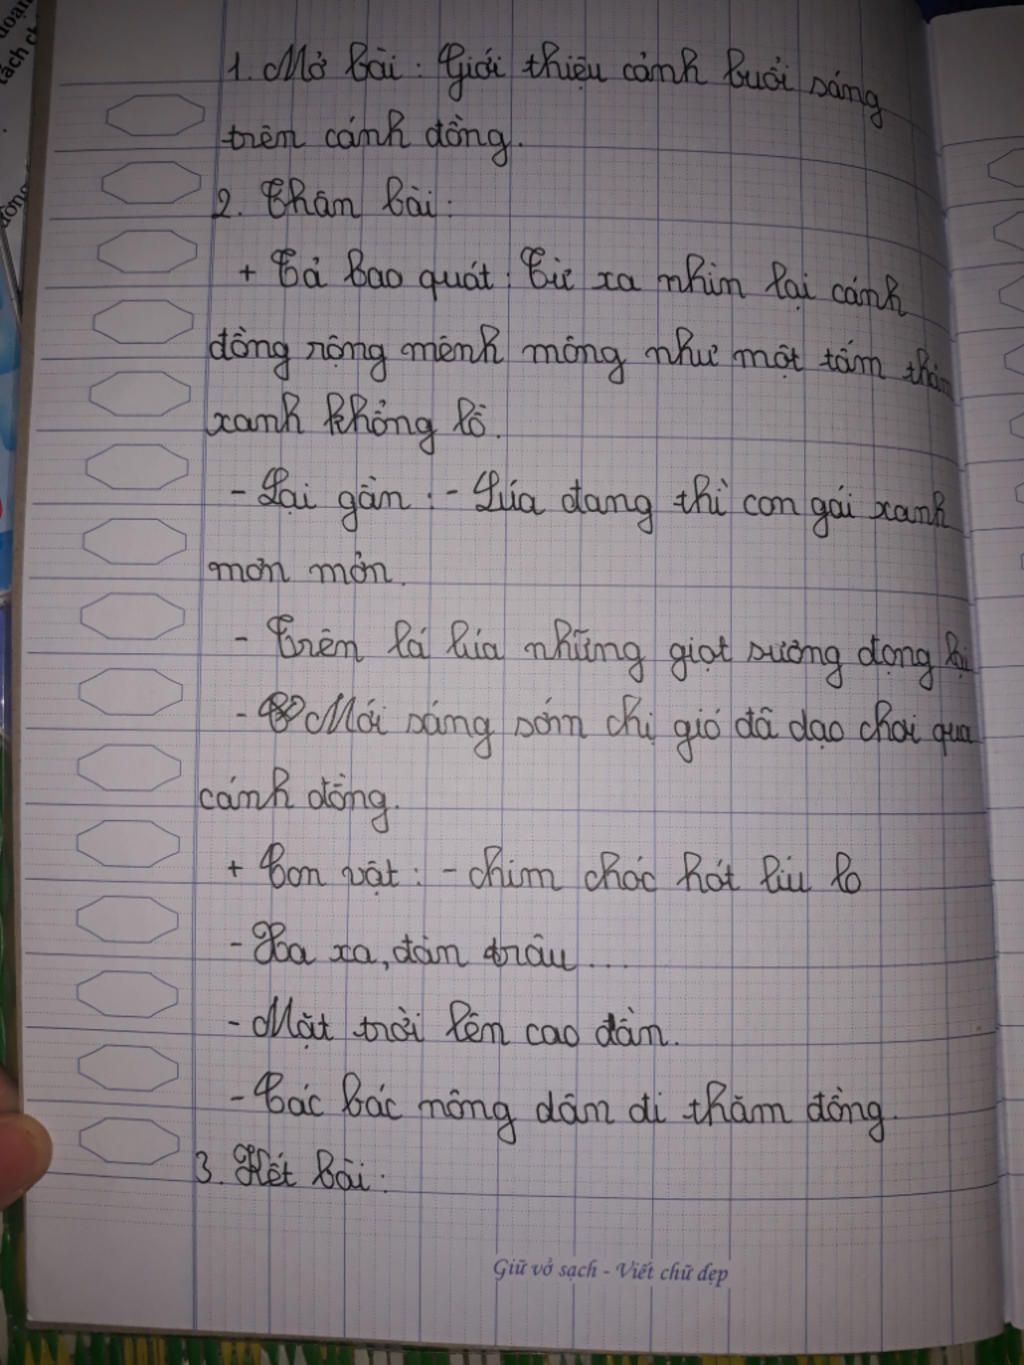 1. Mở bài: Giới thiệu cảnh buổi sáng
trên cánh đồng.
2. Thân bài:
+ Tả bao quát: Từ xa nhìn lại cánh
đồng rộng mênh mông như một tấm thảm
xanh khổng lồ.
- Lại gần: - Lúa đang thì con gái xanh
mơn mởn.
- Trên lá lúa những giọt sương đọng lại
- Mới sáng sớm chị gió đã dạo chơi qua
cánh đồng.
+ Con vật: - chim chóc hót líu lo
- Xa xa, đàn trâu...
- Mặt trời lên cao dần.
- Các bác nông dân đi thăm đồng.
3. Kết bài:
Giữ vở sạch - Viết chữ đẹp